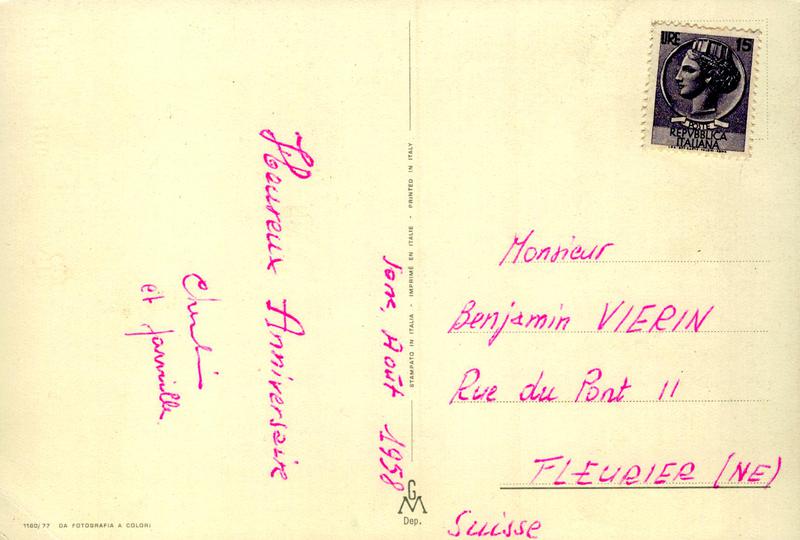 Jonx, Août 1958
Heureux Anniversaire
et famille
STAMPATO IN ITALIA - IMPRIMÉ EN ITALIE - PRINTED IN ITALY
LIRE 15
POSTE
REPVBBLICA
ITALIANA
Monsieur
Benjamin VIERIN
Rue du Pont 11
FLEURIER (NE)
Suisse
1160/77 DA FOTOGRAFIA A COLORI
GM
Dep.